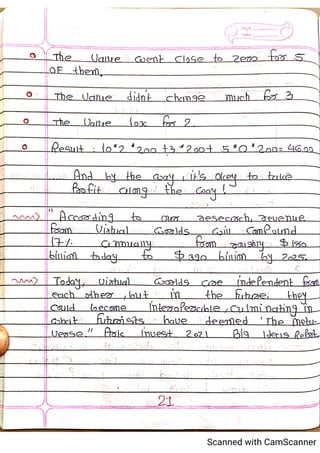 The Value went close to zero for 5
OF them.
The Value didn't change much for 3
The Value 10x for 2.
Result : 10*2*200 +3*200+ 5*0*200= 4600
And by the way, it's Okey to take
Profit along the way !
"According to our research, revenue
From Virtual Worlds Will Compound
17% annually from roughly $180
billion today to $390 billion by 2025.
Today, Virtual Worlds are independent from
each other, but in the future, they
could become Interoperable, culminating in
what futurists have deemed 'The meta-
verse." Ark Invest 2021 Big Ideas Report.
21
Scanned with CamScanner